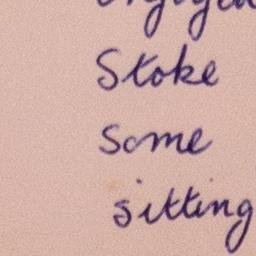 Stoke
Some
sitting